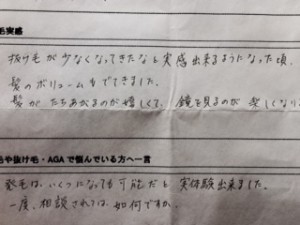 毛実感
抜け毛が少なくなってきたなと実感出来るようになった頃
髪のボリュームもでてきました。
髪が たちあがるのが嬉しくて、鏡を見るのが 楽しくなりま
毛や抜け毛・AGAで悩んでいる方へ一言
発毛は、いくつになっても可能だと 実体験出来ました。
一度、相談されては 如何ですか。